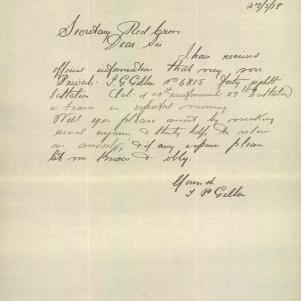 27/3/18
Secretary Red Cross
Dear Sir
I have received
official information that my son
Private T G Geller No 6815 forty eighth
battalion (late of 20th reinforcements 27th Battalion)
in France is reported missing
Will you please assist by making
usual enquiries & kindly help to
an & if any expense please
let me know & oblige
Yours
T P Geller